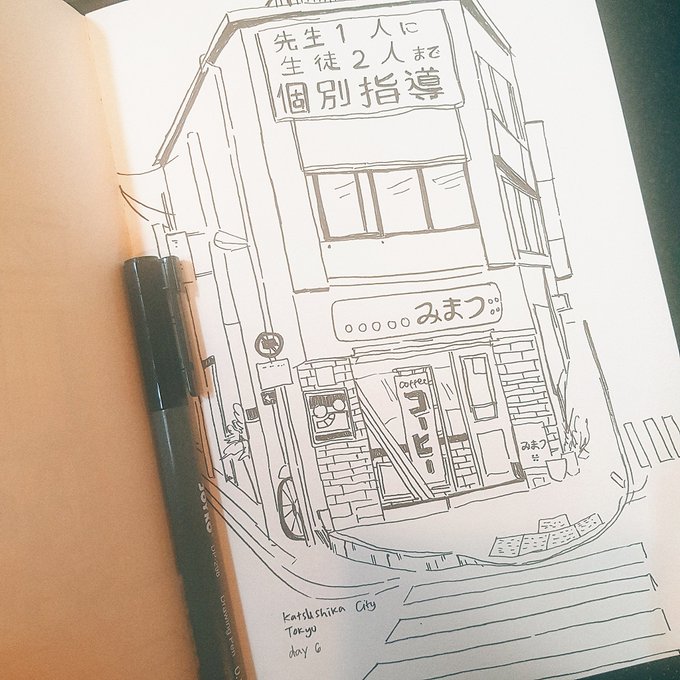 先生1人に
生徒2人まで
個別指導
みまつ
coffee
コーヒー
みまつ
Katsushika City
Tokyo
day 6
Drawing Pen